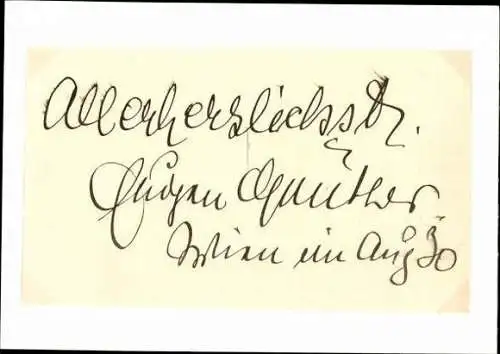 Allerherzlichst.
Eugen Günther.
Wien im Aug 30